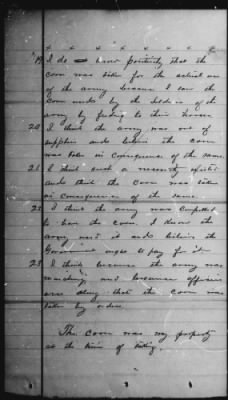 x x x x x x x
19 I do know positively that the
corn was taken for the actual use
of the army because I saw the
corn used by the soldiers of the
army by feeding to their horses
20 I think the army was out of
supplies and believe the corn
was taken in consequence of the same.
21 I think such a necessity existed
and think the corn was taken
in consequence of the same.
22 I think the army was compelled
to have the corn. I know the
army used it and believe the
Government ought to pay for it
23 I think because the army was
marching and because officers
were along that the corn was
taken by orders.
The corn was my property
at the time of taking.